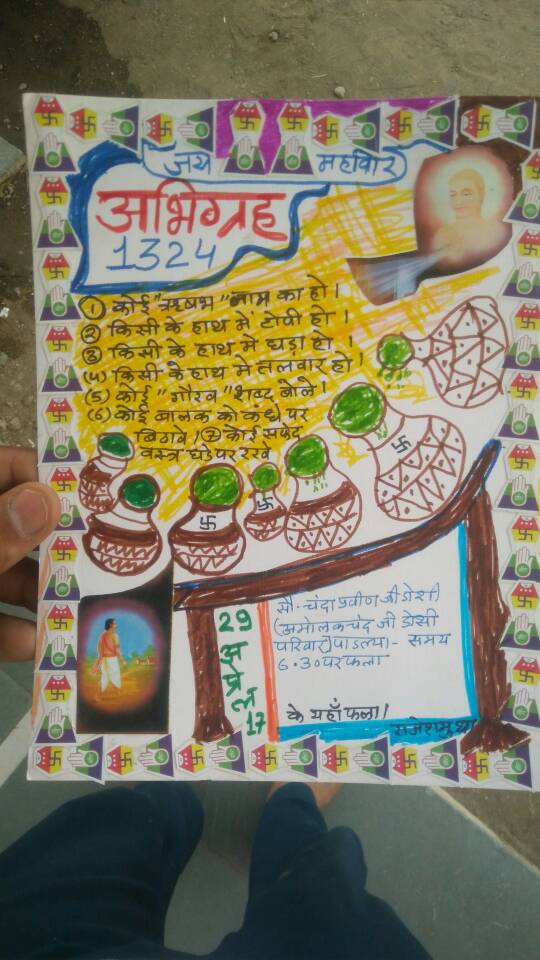 जय महावीर
अभिग्रह
1324
① कोई "ऋषभ" नाम का हो।
② किसी के हाथ में टोपी हो।
③ किसी के हाथ में घड़ा हो।
(4) किसी के हाथ में तलवार हो।
(5) कोई "गौरव" शब्द बोले।
(6) कोई बालक को कंधे पर
बिठावे। ⑦ कोई सफेद
वस्त्र घडे पर रखे
29 अप्रेल 17
सौ. चंदा प्रवीण जी डोसी
(अमोलकचंद जी डोसी
परिवार) - समय
6.30 पर फला
के यहाँ फला।
राजेश मुथा